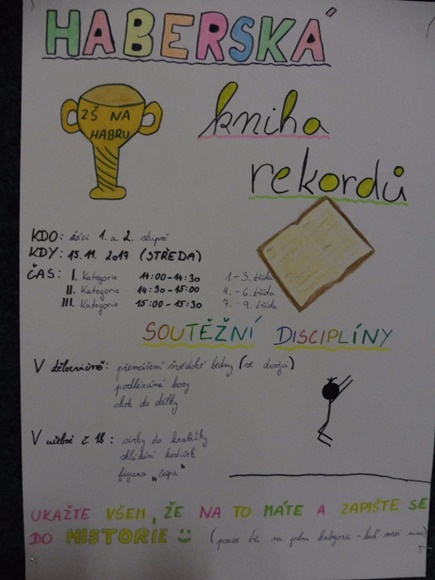 HABERSKÁ
ZŠ NA
HABRU
kniha
rekordů
KDO: žáci 1. a 2. stupně
KDY: 15.11.2017 (STŘEDA)
ČAS: I. Kategorie 14:00-14:30 1.-3. třída
II. Kategorie 14:30-15:00 4.-6. třída
III. Kategorie 15:00-15:30 7.-9. třída
SOUTĚŽNÍ DISCIPLÍNY
V tělocvičně: přeskočení švédské bedny (ve dvojici)
skok do dálky
V učebně č 18: sirky do krabičky
figura „čápa"
UKAŽTE VŠEM, ŽE NA TO MÁTE A ZAPIŠTE SE
DO HISTORIE (pouze na jednu kategorii - buď mezi nimi)